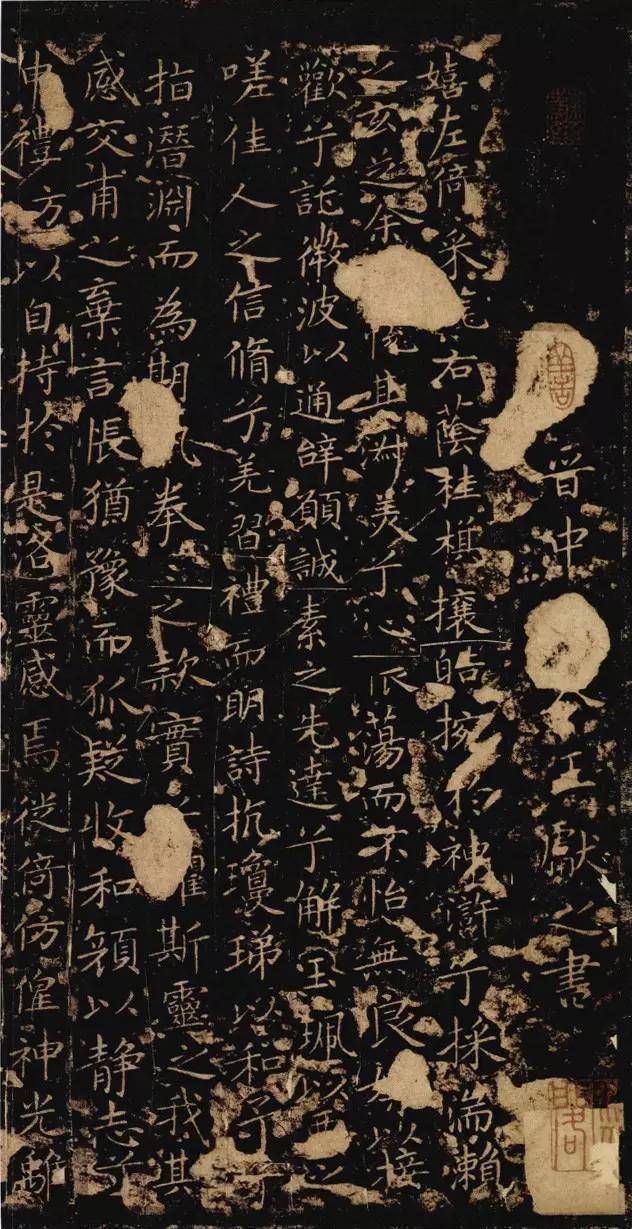 晉中令王獻之書
嬉左倚采旄右蔭桂旗攘皓捥於神滸兮採湍瀨
之玄芝余悅其淑美兮心振蕩而不怡無良媒以接
歡兮託微波以通辭願誠素之先達兮解玉珮以要之
嗟佳人之信脩兮羌習禮而明詩抗瓊珶以和予兮
指潛淵而為期執拳〻之款實兮懼斯靈之我其
感交甫之棄言悵猶豫而狐疑收和顏以静志兮
申禮方以自持於是洛靈感焉徙倚仿偟神光離